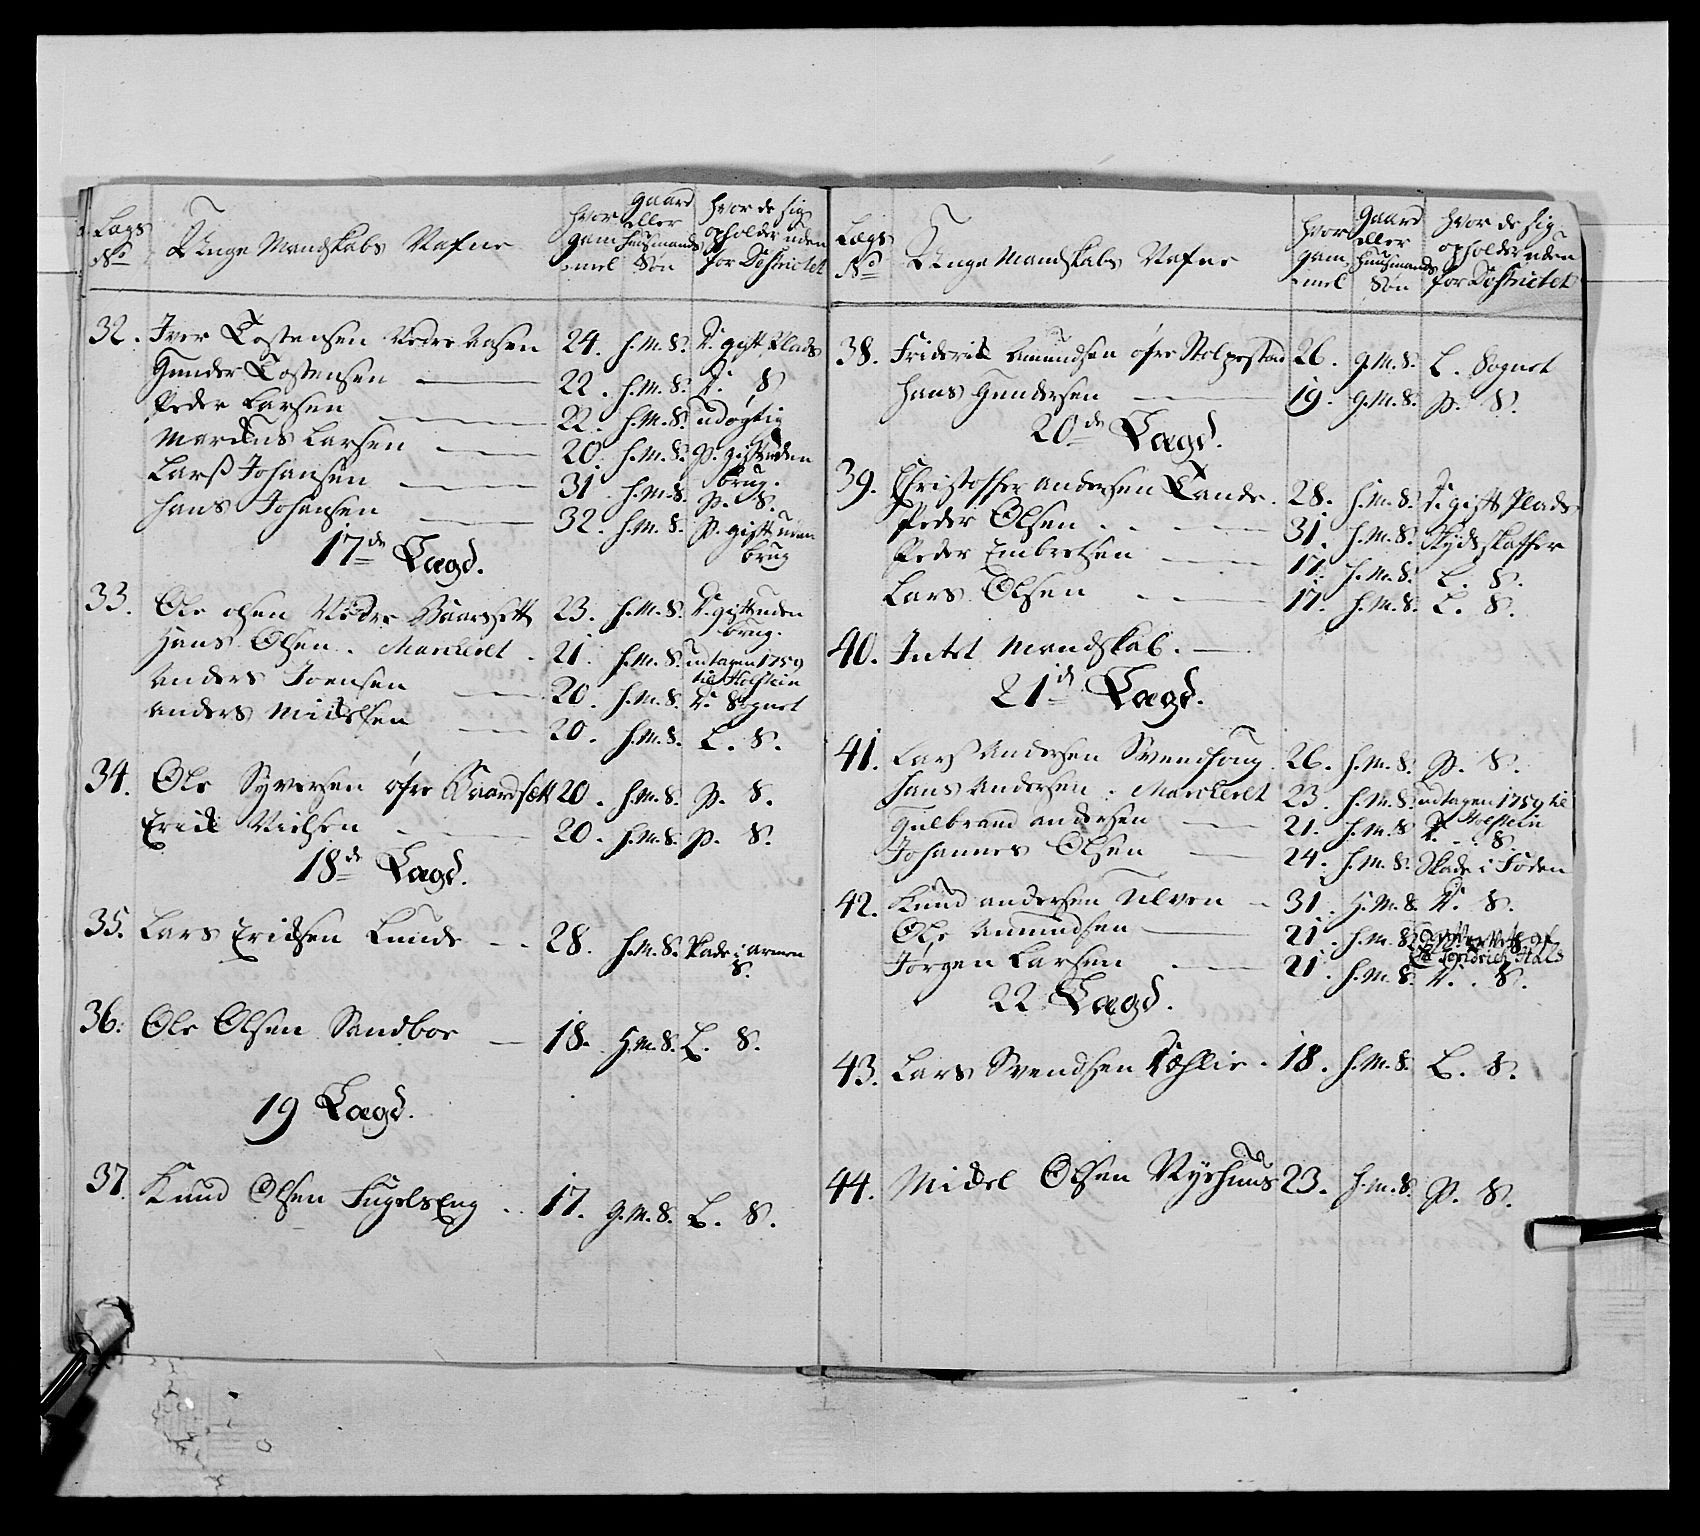 Lægs No Unge Mandskabs Nafne hvor gammel Gaard eller Huusmands Søn hvor de sig opholder uden for Districtet
32. Iver Tostensen Nedre Aasen 24. H.M.S. T. gift Plads
Gunder Tostensen 22. H.M.S. T. S
Peder Larsen 22. H.M.S. udøgtig
Marcus Larsen 20. H.M.S. P. gift uden brug.
Larß Johansen 31. H.M.S. P. S.
Hans Johansen 32. H.M.S. P. gift uden brug
17de Lægd.
33. Ole Olsen Nedre Baarsett 23. H.M.S. T. gift uden brug.
Hans Olsen. Marckeret. 21. H.M.S. udtagen 1759 til Holstein
Anders Joensen 20. H.M.S. T. Sognet
Anders Mickelsen 20. H.M.S. L. S.
34. Ole Syversen øfre Baardsett 20. H.M.S. P. S.
Erick Nielsen 20. H.M.S. P. S.
18de Lægd.
35. Lars Ericksen Lunde 28. H.M.S. Skade i Armen S.
36. Ole Olsen Sandboe 18. H.M.S. L. S.
19 Lægd.
37. Knud Olsen FugelsEng 17. G.M.S. L. S.
Lægs No Unge Mandskabs Nafne hvor gammel Gaard eller Huusmands Søn hvor de sig opholder uden for Districtet
38. Friderick Amundsen øfre Stolpestad 26. G.M.S. L. Sognet
Hans Gundersen 19. G.M.S. P. S.
20de Lægd.
39. Christopher Andersen Tande. 28. H.M.S. T. gift Plads
Peder Olsen 31. H.M.S. Skydskaffer
Peder Embretsen 17. H.M.S. L. S.
Lars Olsen 17. H.M.S. L. S.
40. Intet Mandskab.
21de Lægd.
41. Lars Andersen Svendhaug 26. H.M.S. P. S.
Hans Andersen. Marckeret 23. H.M.S. udtagen 1759 til Holstein
Gulbrand Andersen 21. H.M.S. T. S.
Johannes Olsen 24. H.M.S. Skade i Foden
42. Knud Andersen Ulven 31. H.M.S. T. S.
Ole Amundsen 21. H.M.S. Fridrich Hals
Jørgen Larsen 21. H.M.S. T. S.
22 Lægd.
43. Lars Svendsen 18. H.M.S. L. S.
44. Mickel Olsen Nyehuus 23. H.M.S. P. S.